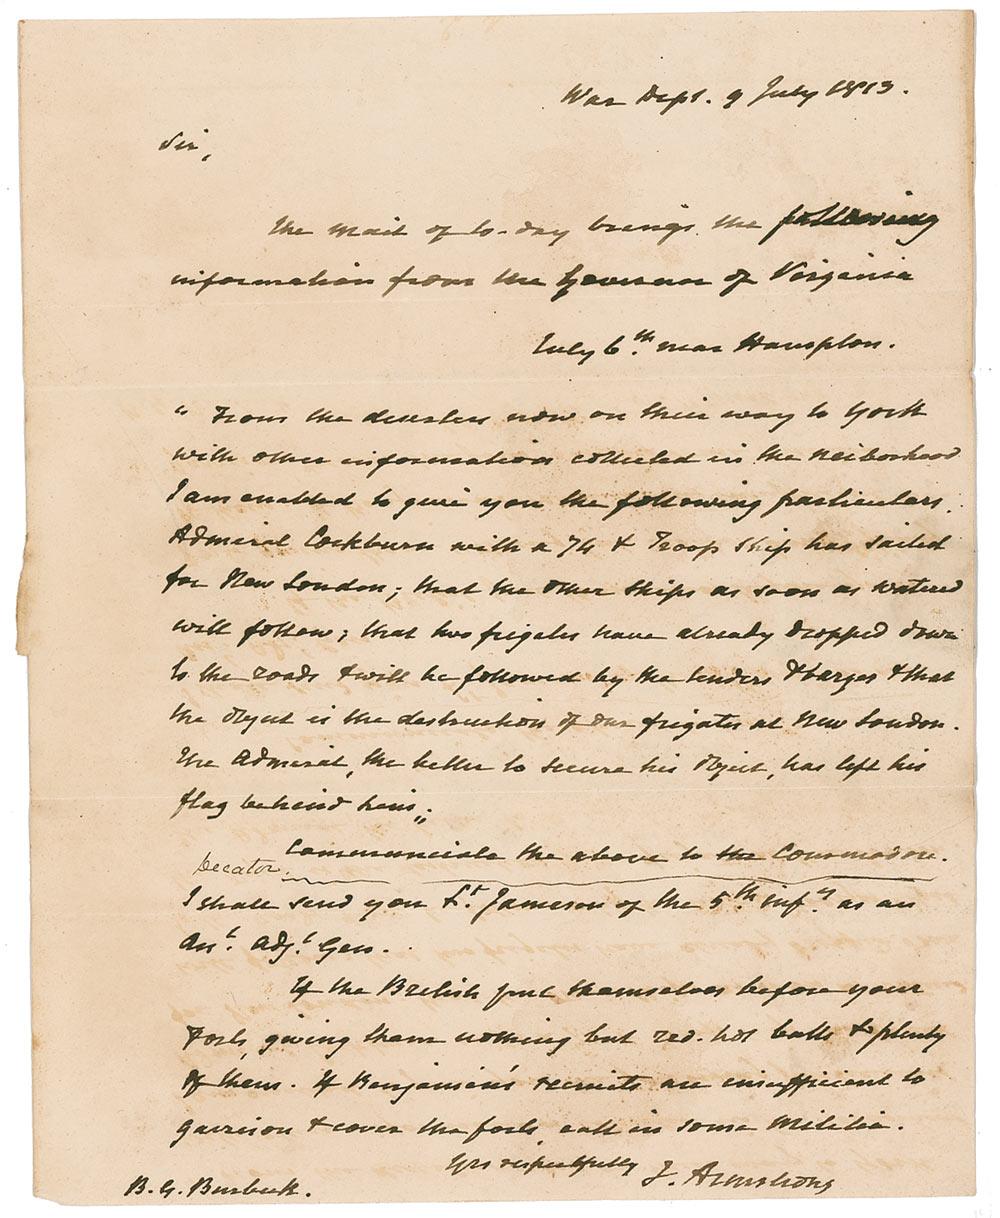 War Dept. 9 July 1813.
Sir,
The mail of to-day brings the following
information from the Governor of Virginia
July 6th. near Hampton.
" From the deserters now on their way to York
with other information collected in the neiborhood
I am enabled to give you the following particulars.
Admiral Cockburn with a 74 & Troop ship has sailed
for New London; that the other ships as soon as watered
will follow; that two frigates have already dropped down
to the roads & will be followed by the tenders & barges & that
the object is the destruction of our frigates at New London.
The Admiral, the better to secure his object, has left his
flag behind him,,
Communicate the above to the Commodore.
Decator.
I shall send you Lt. Jameson of the 5th. infy. as an
Ast. Adjt. Gen.
If the British put themselves before your
Forts, giving them nothing but red-hot balls & plenty
of them. If Benjamin's recruits are insufficient to
garrison & cover the forts, call in some Militia.
Yrs respectfully
J. Armstrong
B. G. Burbeck.